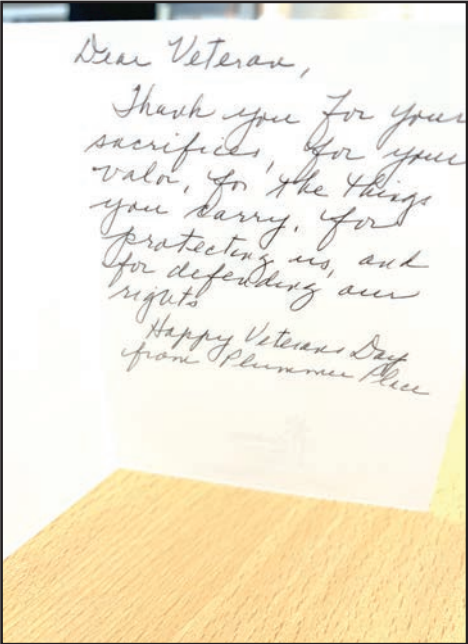 Dear Veteran,
Thank you for your
sacrifices, for your
valor, for the things
you carry, for
protecting us, and
for defending our
rights
Happy Veterans Day
from Plummer Place